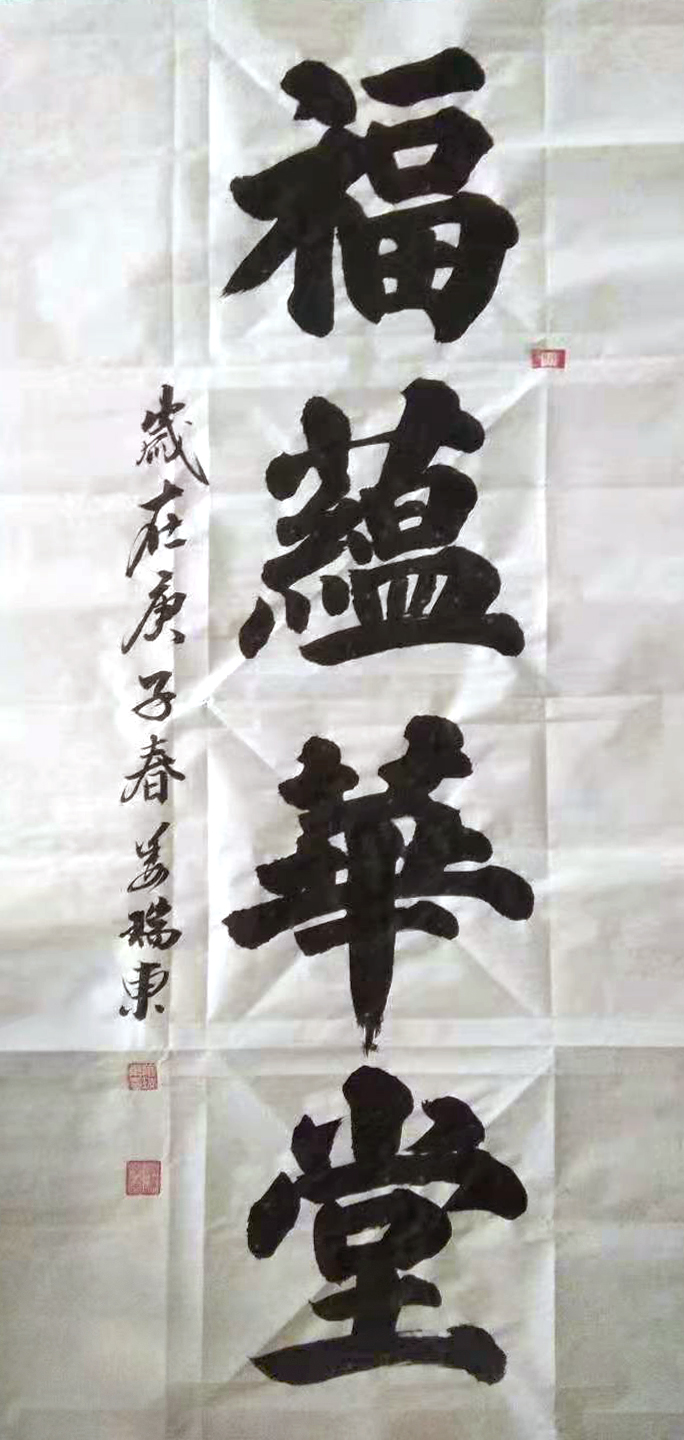 福蘊華堂
歲在庚子春姜瑞東